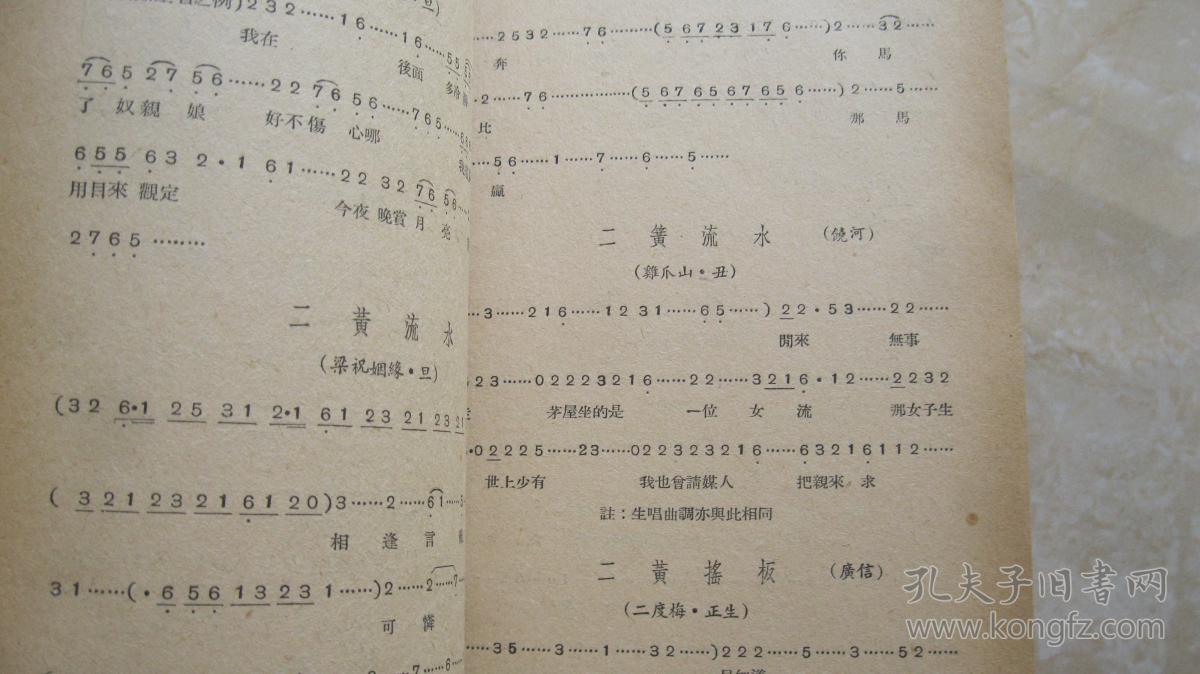 )232……16……16……
我在 後面
765 27 56……22 76 56……765……
了 奴親 娘 好不傷 心哪
655 63 2·1 61……22 32 76 56……
用目來 觀定 今夜 晚賞 月 亮
2765………
二 黃 流 水
(梁祝姻緣·旦)
(32 6·1 25 31 2·1 61 23 21 23 21
(321 232 161 20)3……2……61……
相 逢 言
31……(·656 13 23 1……)2……2……7……
可 憐
……2532……76………(5672317 6……)2……32……
奔 你 馬
·2……76………………(5676567656……)2……5……
比 那 馬
……56……1……7……6……5……
贏
二 簧 流 水 (饶河)
(雞爪山·丑)
…3……216……1231……65……)22·53……22……
閒來 無事
523……02223216……22……3216·12……2232
茅屋坐的是 一位 女 流 那女子生
·02225……23……022323216……63216112……
世上少有 我也曾請媒人 把親來 求
註：生唱曲調亦與此相同
二 黃 搖 板 (廣信)
(二度梅·正生)
……35……3……1……32……)222……5……3……52……
孔夫子旧书网
www.kongfz.com